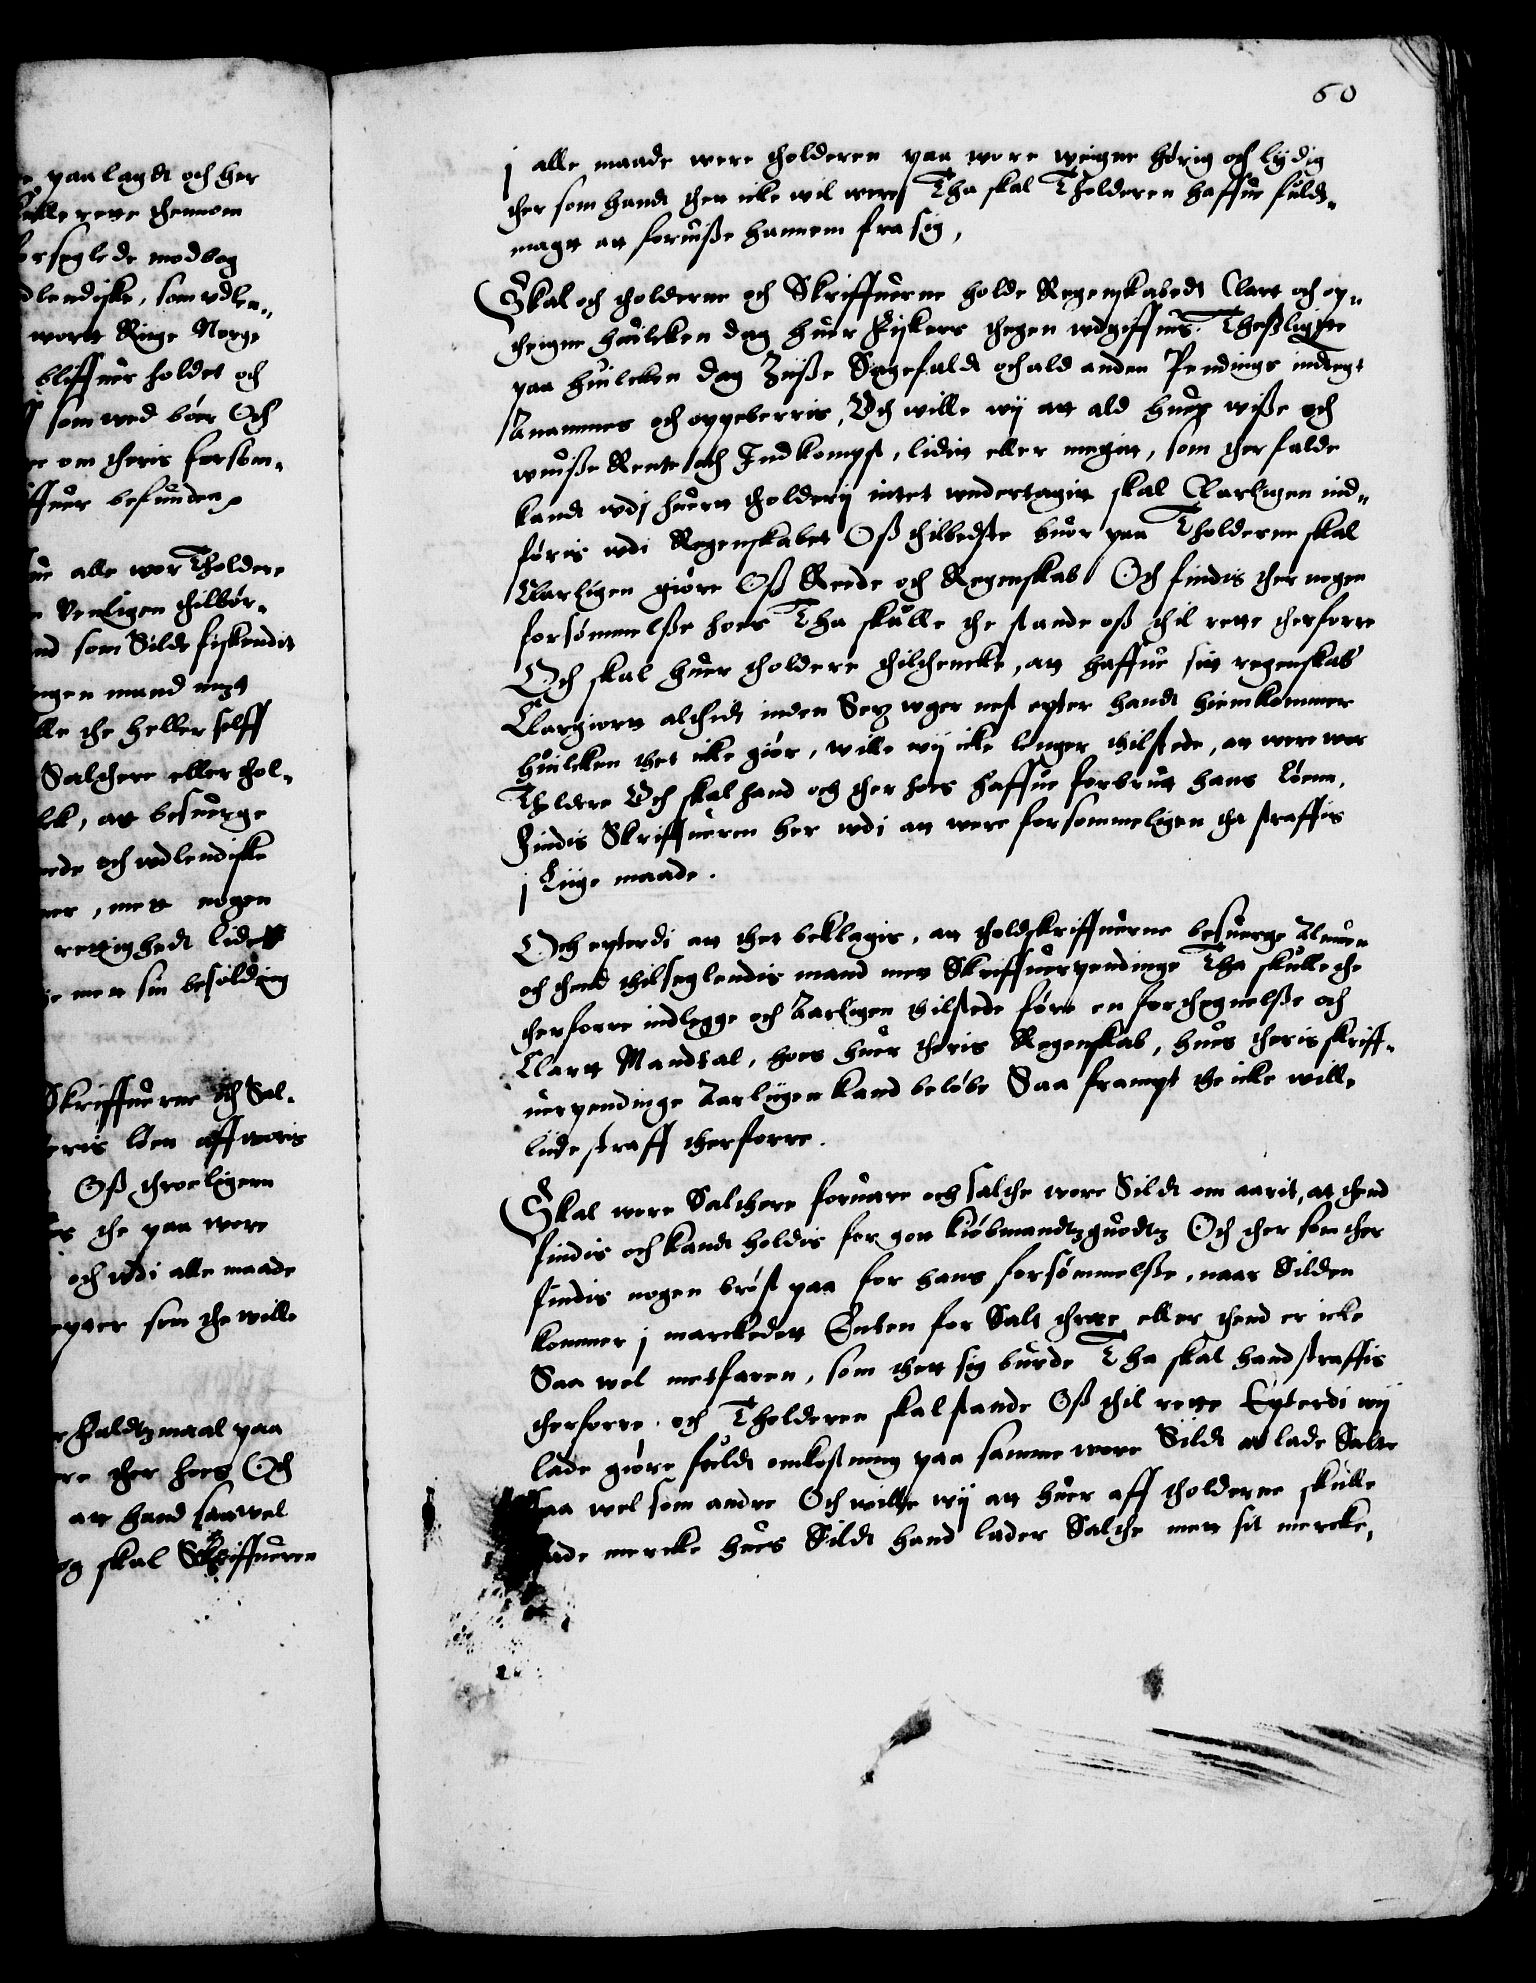 e paalagdt och her
skulle rette thennom
forseglede modbog
dlendiske, som vdlen-
wortt Rige Norge
bliffuer holdet och
som wed bør Och
re om theris forsøm-
ffuer befunden
ue alle wor Tholdere
e venligen thilbør-
nd som Sildt fiskendis
ngen mand mett
lle the heller selff
Salthere eller thol-
lck, att besuerge
ede och vdlendiske
ner, mett nogen
rettighedt lidett
e mett sin besolding
Skriffuerne och Sal-
eris løen aff woris
Oss throeligenn
s the paa wore
och vdi alle maade
epter som the wille
e Faldtzmaal paa
re ther hoes Och
att hand saawel
og skal Skriffueren
60
j alle maade were tholderen paa wore weigne hørig och lydig
ther som handt thett icke wil were Tha skal Tholderen haffue fuldt-
magtt att foruise hannem fra sig,
Skal och tholderne och Skriffuerne holde Regenskabedt Clart och op-
theigne huilcken dag huer Fiskers thegen wdgiffuis. Thesligiste
paa huilcken dag Ziise Sagefaldt och ald anden Pendings indtegt
Anammes och oppeberris, Och wille wij att ald huess wisse och
wuisse Rente och Indkompst, lidett eller megitt, som ther falde
kandt wdj huertt tholderij intet wndertagitt skal Clarligen ind-
føris wdi Regenskabet Oss thilbedste huor paa Tholderne skal
Aarligen giøre Oss Reede och Regenskab Och findis ther nogen
forsømmelsse hoes Tha skulle the stande oss thil rette therforre
Och skal huer tholdere thilthencke, att haffue sitt regenskab
Clargiortt altidt inden Sex wger nest epter handt hiemkommer
huilcken thet icke giør, wille wij icke lenger thilstede, att were wor
Tholdere Och skal hand och ther hoes haffue forbrutt hans Løenn,
Findis Skriffueren her wdi att were forsommeligen tha straffis
j Liige maade.
Och epterdi att thet beklagis, att tholdskriffuerne besuerge Almuen
och thend thilseglendis mand mett Skriffuerpendinge Tha skulle the
therforre indlegge och Aarligen thilstede føre en fortegnelsse och
Clartt Mandtal, hoes huer theris Regenskab, hues theris skriff-
uerpendinge Aarligen kand beløbe Saa frampt the icke wille
liide straff therforre.
Skal wore Salthere foruare och salthe wore Sildt om aarit, at thend
findis och kandt holdis for gott kiøbmandtzguodtz Och ther som ther
findis nogen brøst paa for hans forsømmelsse, naar Silden
kommer j marckedett Enten for Salt thette eller thend er icke
Saa wel metfaren, som thett sig burde Tha skal hand straffis
therforre. och Tholderen skal stande Oss thil rette Epterdi wij
lade giøre fuldt omkostning paa samme wore Sildt at lade Salte
Saa wel som andre Och wille wij att huer aff tholderne skulle
lade mercke hues Sildt hand lader Salthe mett sit mercke,